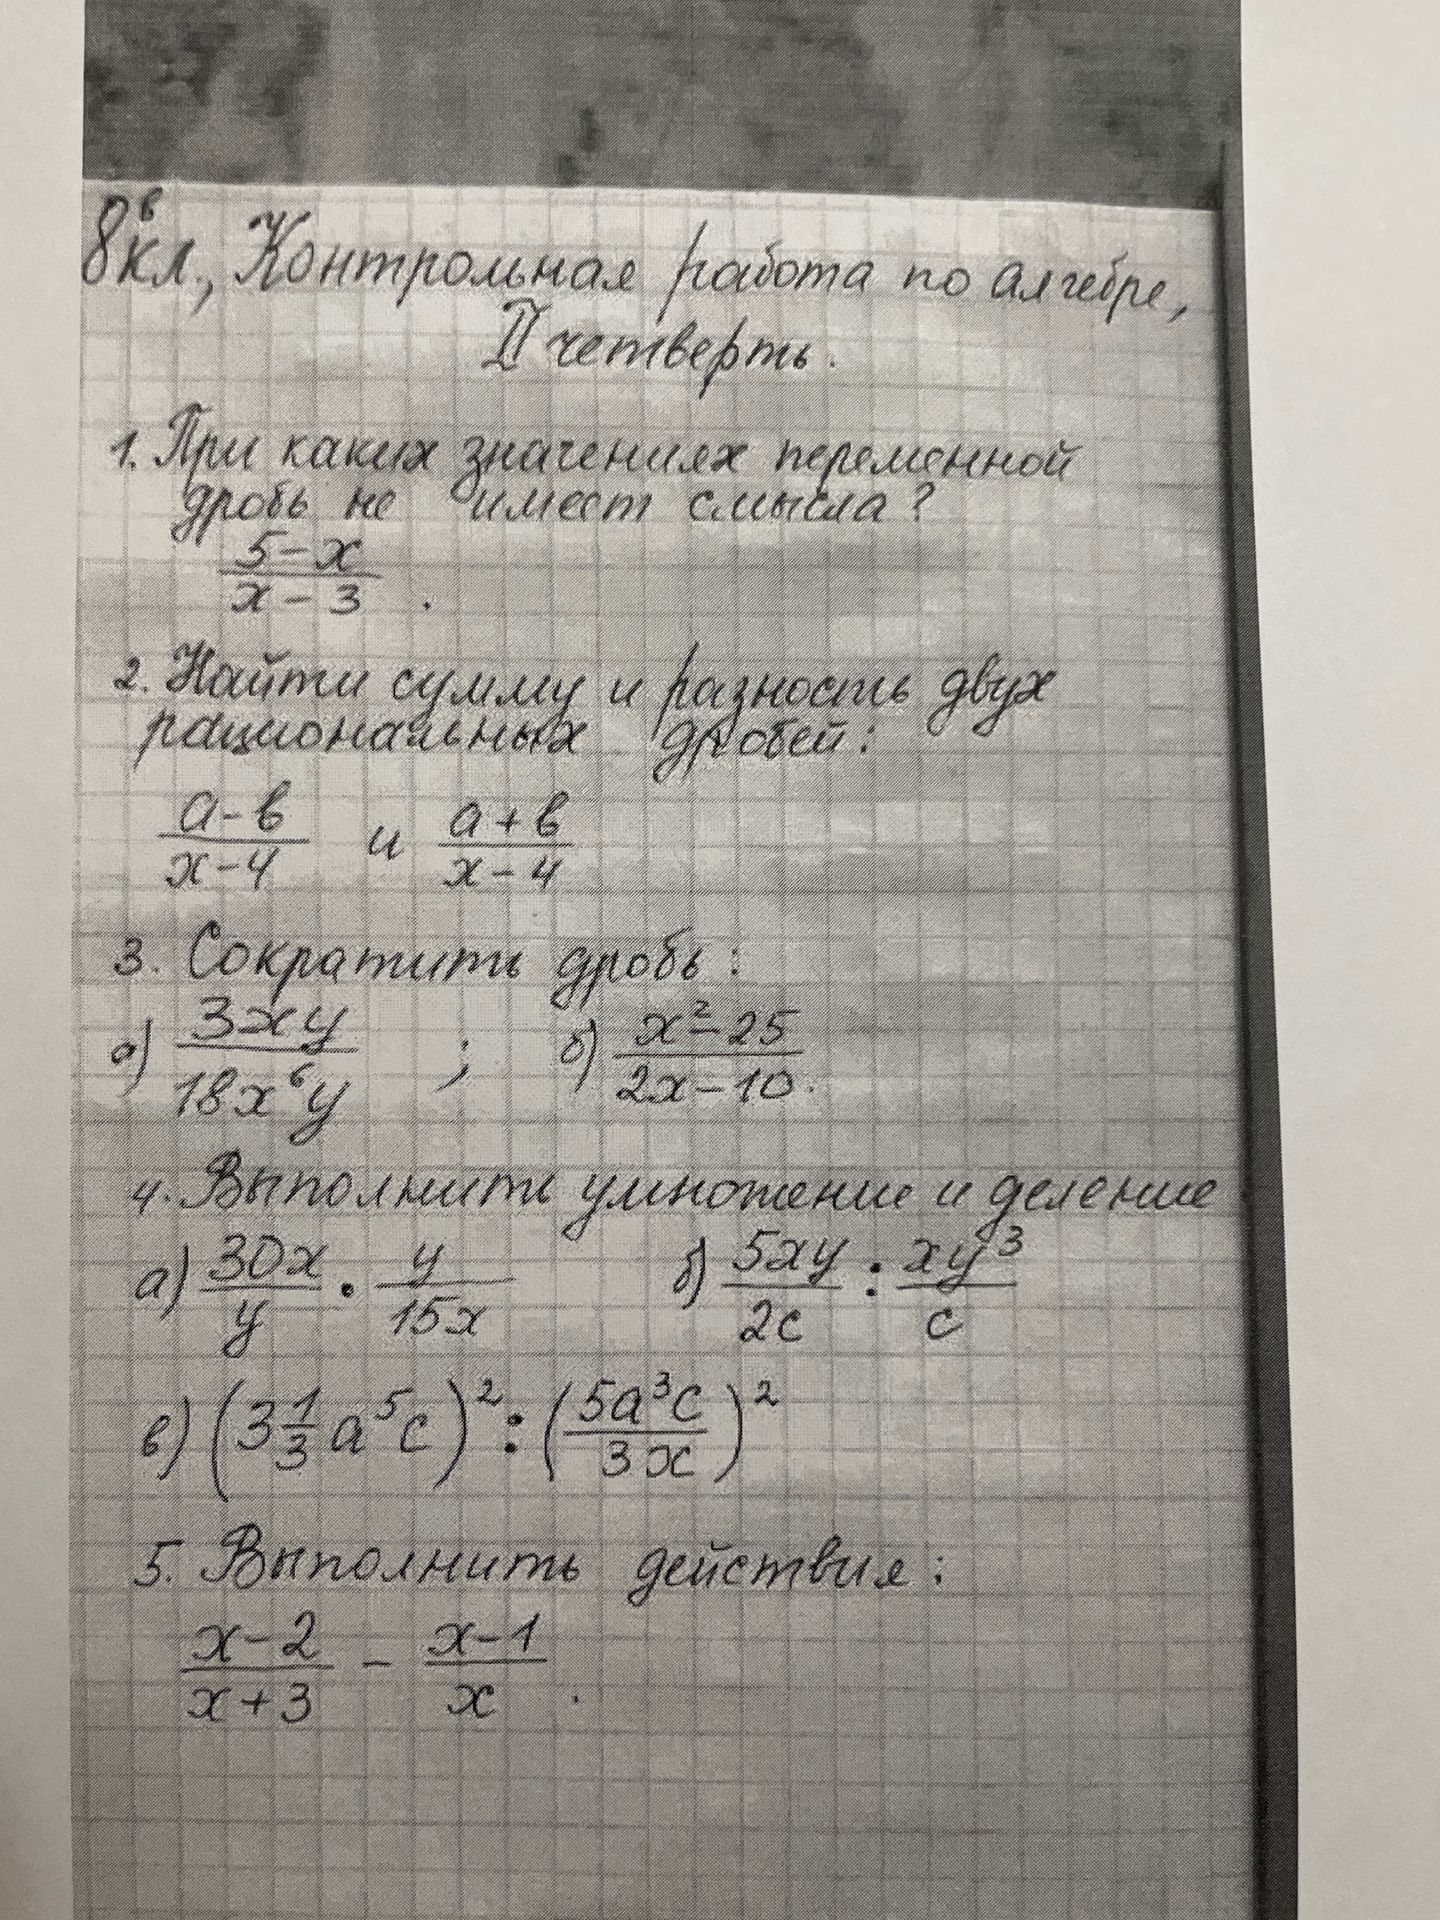 8в кл., Контрольная работа по алгебре,
II четверть.
1. При каких значениях переменной
дробь не имеет смысла?
(5-x)/(x-3).
2. Найти сумму и разность двух
рациональных дробей:
(a-b)/(x-4) и (a+b)/(x-4)
3. Сократить дробь:
а) 3xy/18x⁶y ; б) (x²-25)/(2x-10).
4. Выполнить умножение и деление
а) 30x/y · y/15x б) 5xy/2c : xy³/c
в) (3 1/3 a⁵c)² : (5a³c/3x)²
5. Выполнить действия:
(x-2)/(x+3) - (x-1)/x.